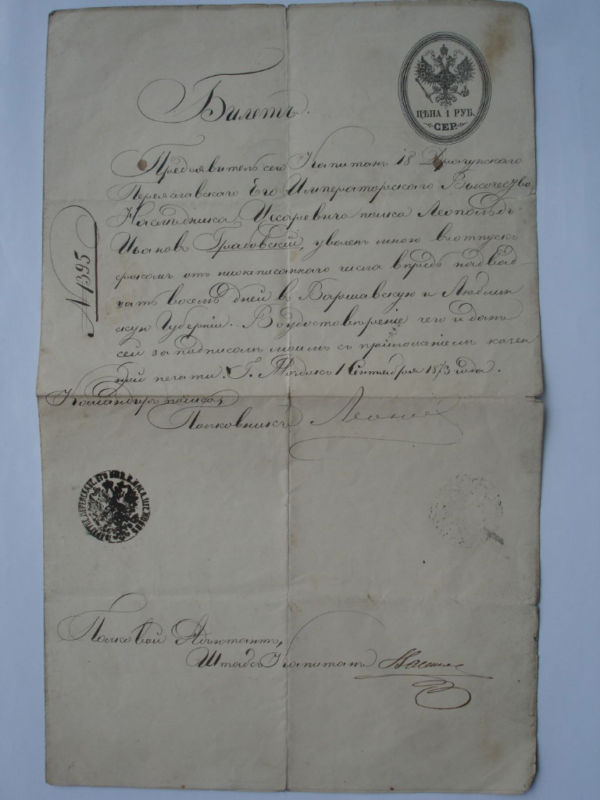 ЦѢНА 1 РУБ.
СЕР.
Билетъ.
Предъявитель сего Капитанъ 18 Драгунскаго
Переяславскаго Его Императорскаго Высочества
Наслѣдника Цесаревича полка Леопольдъ
Ивановъ Грабовскій, уволенъ мною въ отпускъ
срокомъ отъ нижеписаннаго числа впредь на двад-
цать восемь дней въ Варшавскую и Люблин-
скую Губерніи. Въ удостовѣреніе чего и данъ
сей за подписомъ моимъ съ приложеніемъ казен-
ной печати. Г. 1 Сентября 1873 года.
N 1393
Командиръ полка,
Полковникъ
Полковой Адъютантъ,
Штабсъ Капитанъ